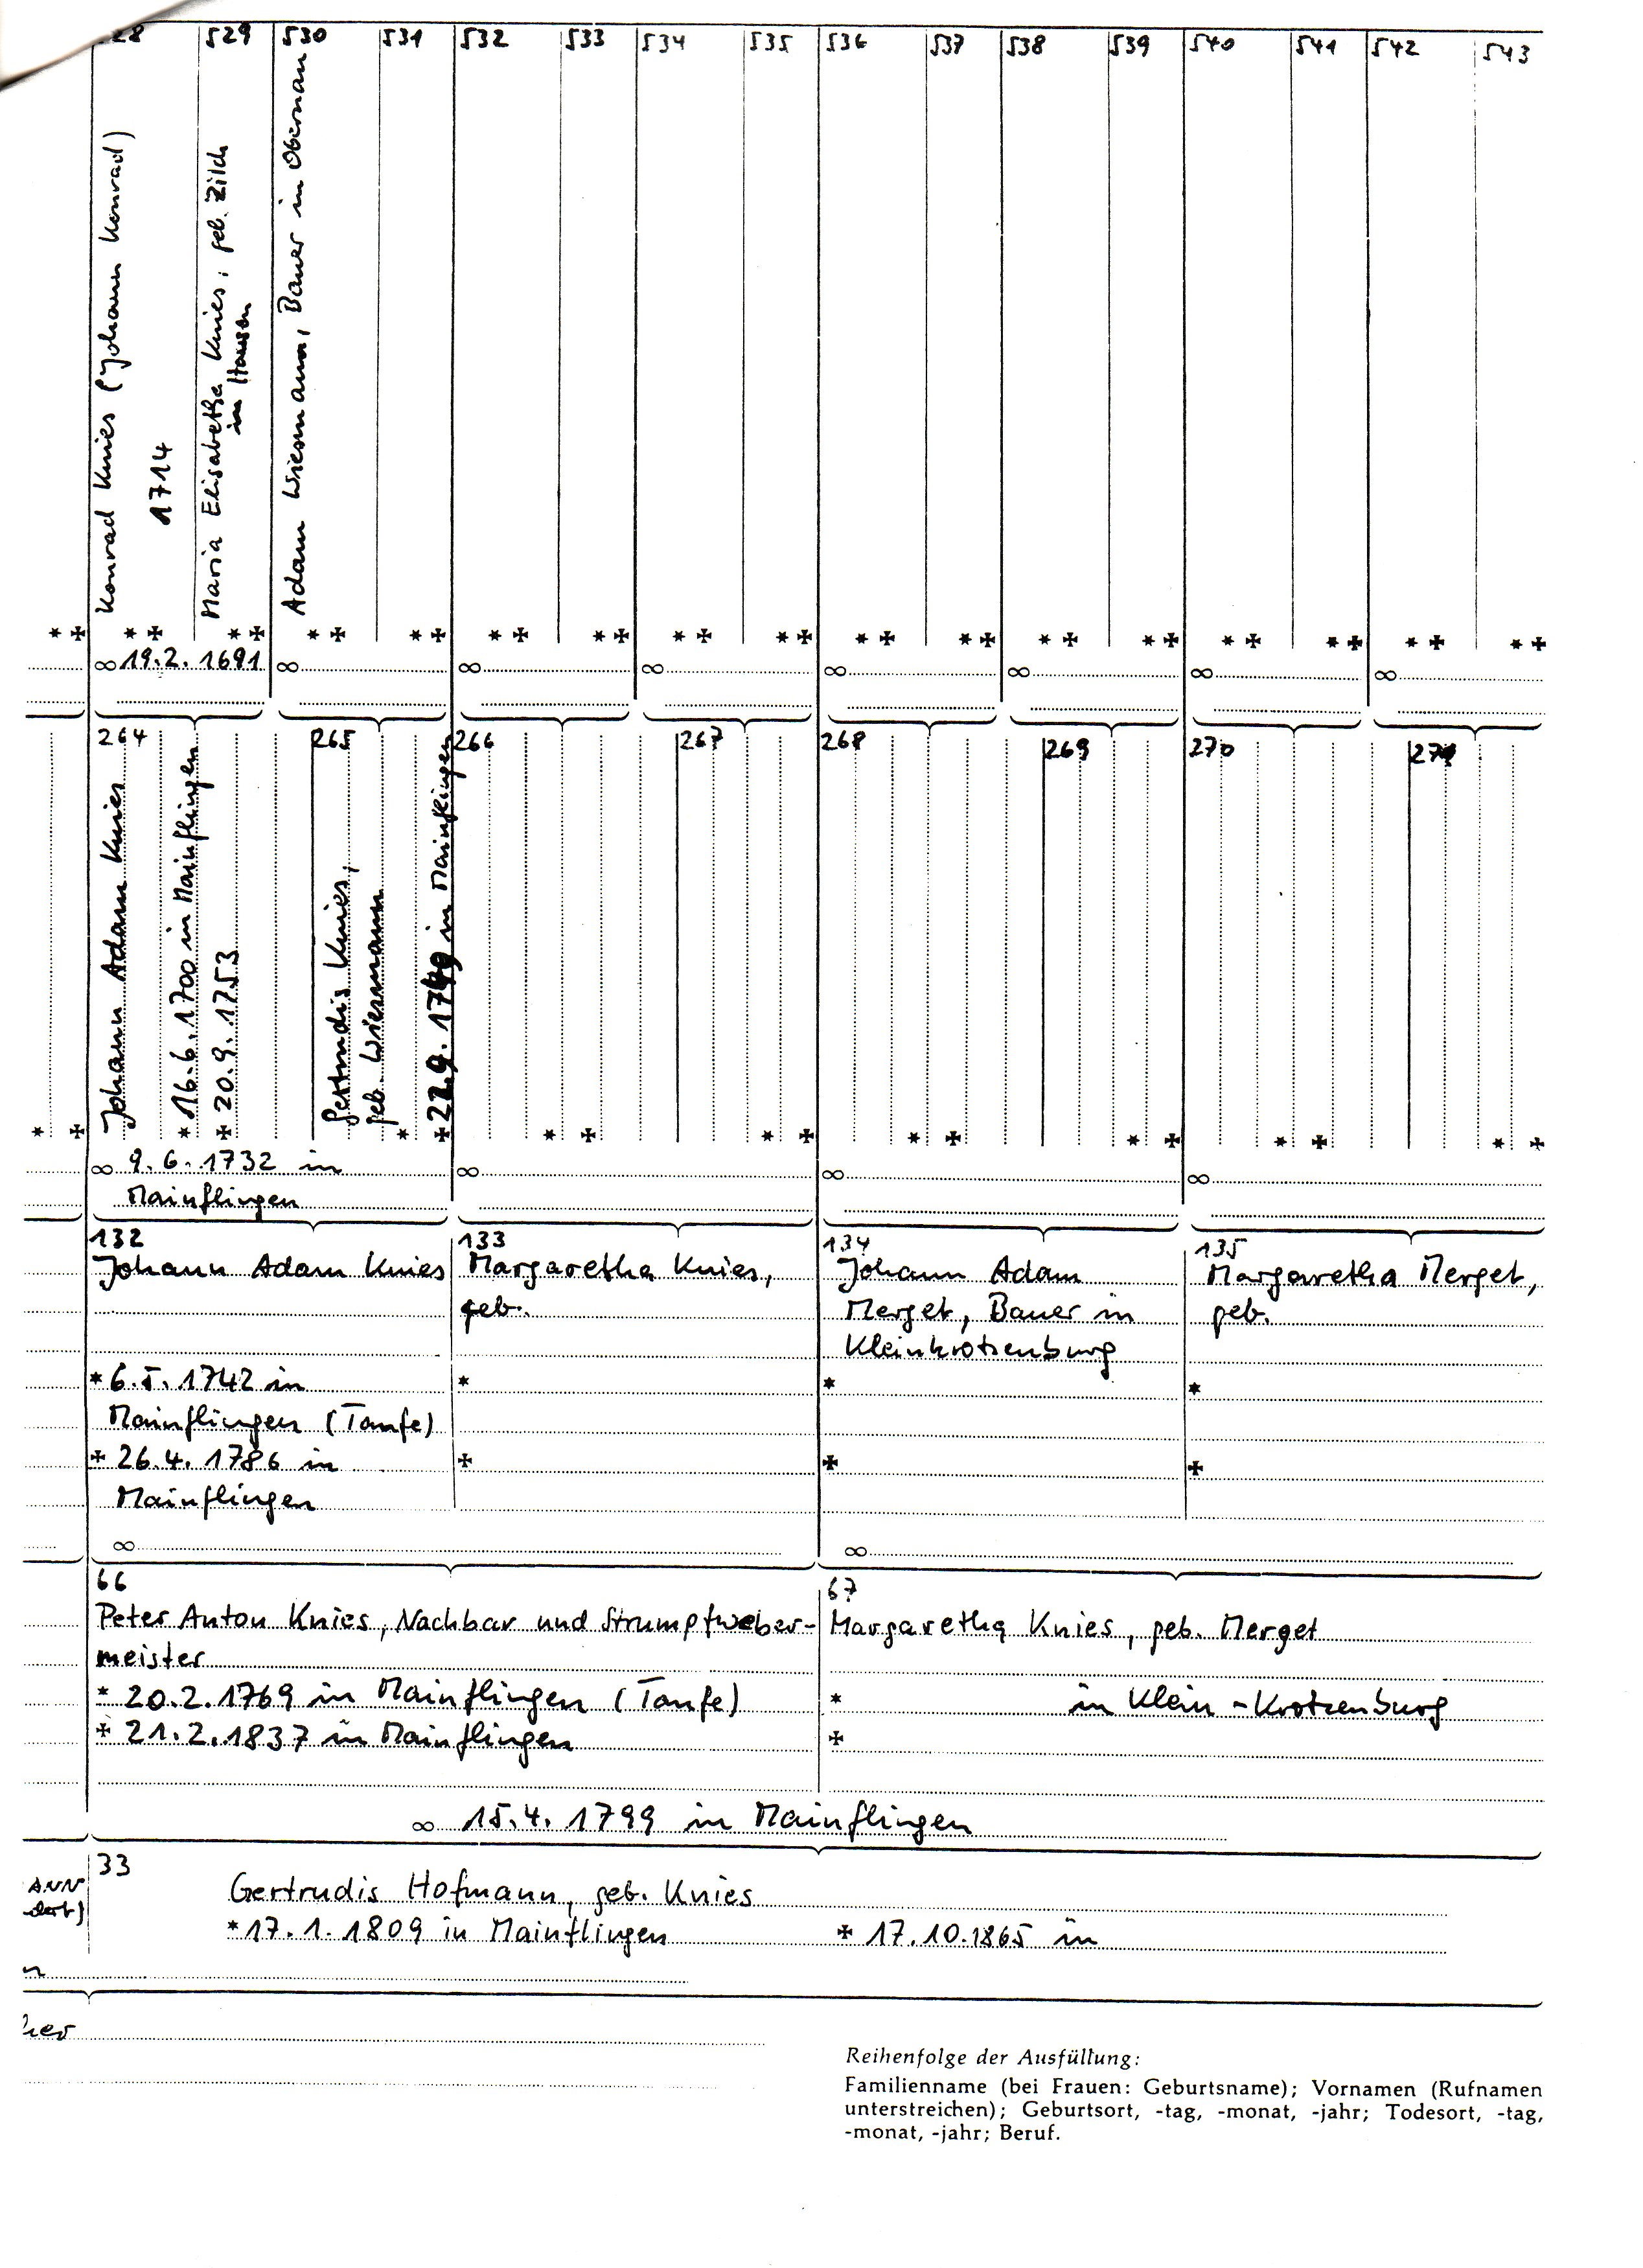 528 529 530 531 532 533 534 535 536 537 538 539 540 541 542 543
Konrad Knies (Johann Konrad)
1714
Maria Elisabetha Knies, geb. Zilch
in Hausen
Adam Wiesmann, Bauer in Obernau
* ✠ * ✠ * ✠ * ✠ * ✠ * ✠ * ✠ * ✠ * ✠ * ✠ * ✠ * ✠ * ✠ * ✠ * ✠ * ✠ * ✠
∞ 19.2.1691 ∞ ∞ ∞ ∞ ∞ ∞ ∞
264 265 266 267 268 269 270 271
Johann Adam Knies
* 16.6.1700 in Mainflingen
✠ 20.9.1753
Gertrudis Knies,
geb. Wiesmann
*
✠ in Mainflingen
* ✠ * ✠ * ✠ * ✠ * ✠ * ✠ * ✠
∞ 9.6.1732 in
Mainflingen
∞ ∞ ∞
132
Johann Adam Knies
* 6.5.1742 in
Mainflingen (Taufe)
✠ 26.4.1786 in
Mainflingen
133
Margaretha Knies,
geb.
*
✠
∞
134
Johann Adam
Merget, Bauer in
Kleinkrotzenburg
*
✠
135
Margaretha Merget,
geb.
*
✠
∞
66
Peter Anton Knies, Nachbar und Strumpfweber-
meister
* 20.2.1769 in Mainflingen (Taufe)
✠ 21.2.1837 in Mainflingen
67
Margaretha Knies, geb. Merget
* in Klein-Krotzenburg
✠
∞ 15.4.1799 in Mainflingen
33
Gertrudis Hofmann, geb. Knies
* 17.1.1809 in Mainflingen ✠ 17.10.1865 in
Reihenfolge der Ausfüllung:
Familienname (bei Frauen: Geburtsname); Vornamen (Rufnamen
unterstreichen); Geburtsort, -tag, -monat, -jahr; Todesort, -tag,
-monat, -jahr; Beruf.